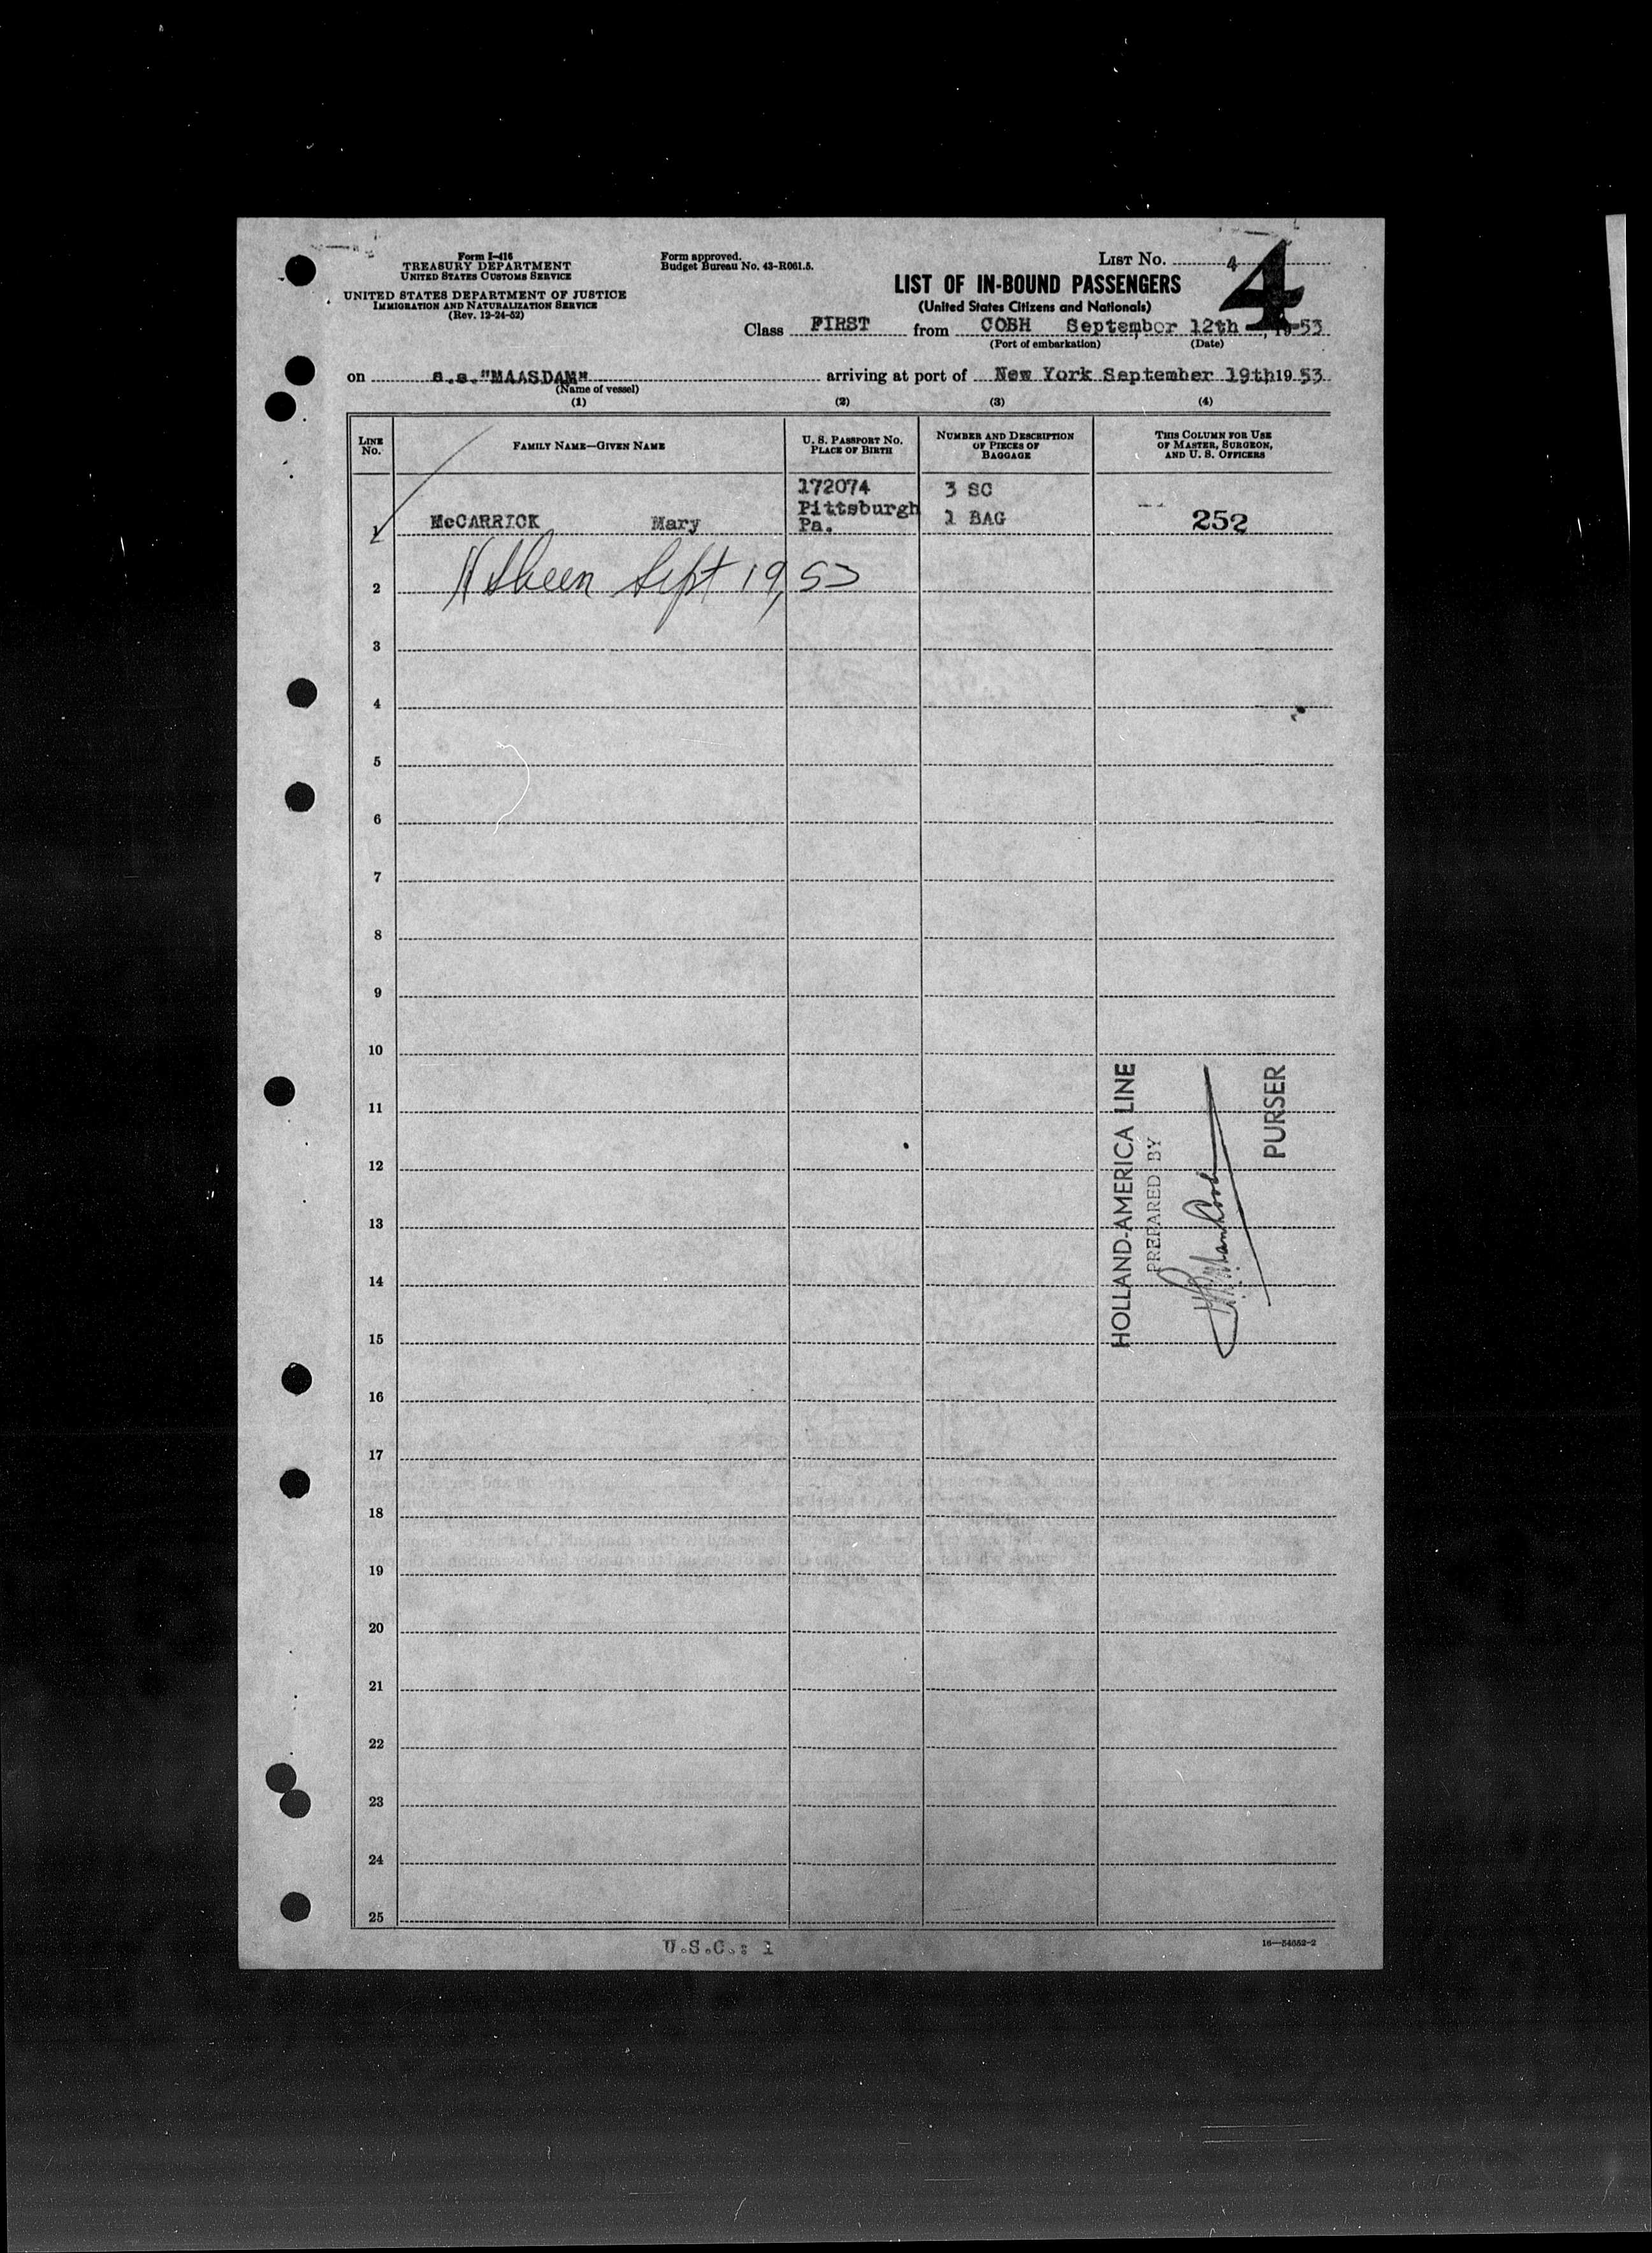 Form I-416
TREASURY DEPARTMENT
UNITED STATES CUSTOMS SERVICE
UNITED STATES DEPARTMENT OF JUSTICE
IMMIGRATION AND NATURALIZATION SERVICE
(Rev. 12-24-52)
Form approved.
Budget Bureau No. 43-R061.5.
LIST No. 4
4
LIST OF IN-BOUND PASSENGERS
(United States Citizens and Nationals)
Class FIRST from COBH September 12th, 19-53
(Port of embarkation) (Date)
on s.s."MAASDAM" arriving at port of New York September 19th 1953
(Name of vessel)
(1) (2) (3) (4)
LINE No. FAMILY NAME—GIVEN NAME U. S. PASSPORT No. PLACE OF BIRTH NUMBER AND DESCRIPTION OF PIECES OF BAGGAGE THIS COLUMN FOR USE OF MASTER, SURGEON, AND U. S. OFFICERS
172074 3 SC
Pittsburgh
1 McCARRICK Mary Pa. 1 BAG 252
2 Sept 19, 53
3
4
5
6
7
8
9
10
11
12
13
14
15
16
17
18
19
20
21
22
23
24
25
HOLLAND-AMERICA LINE
PREPARED BY
PURSER
U.S.C.: 1
16—54652-2